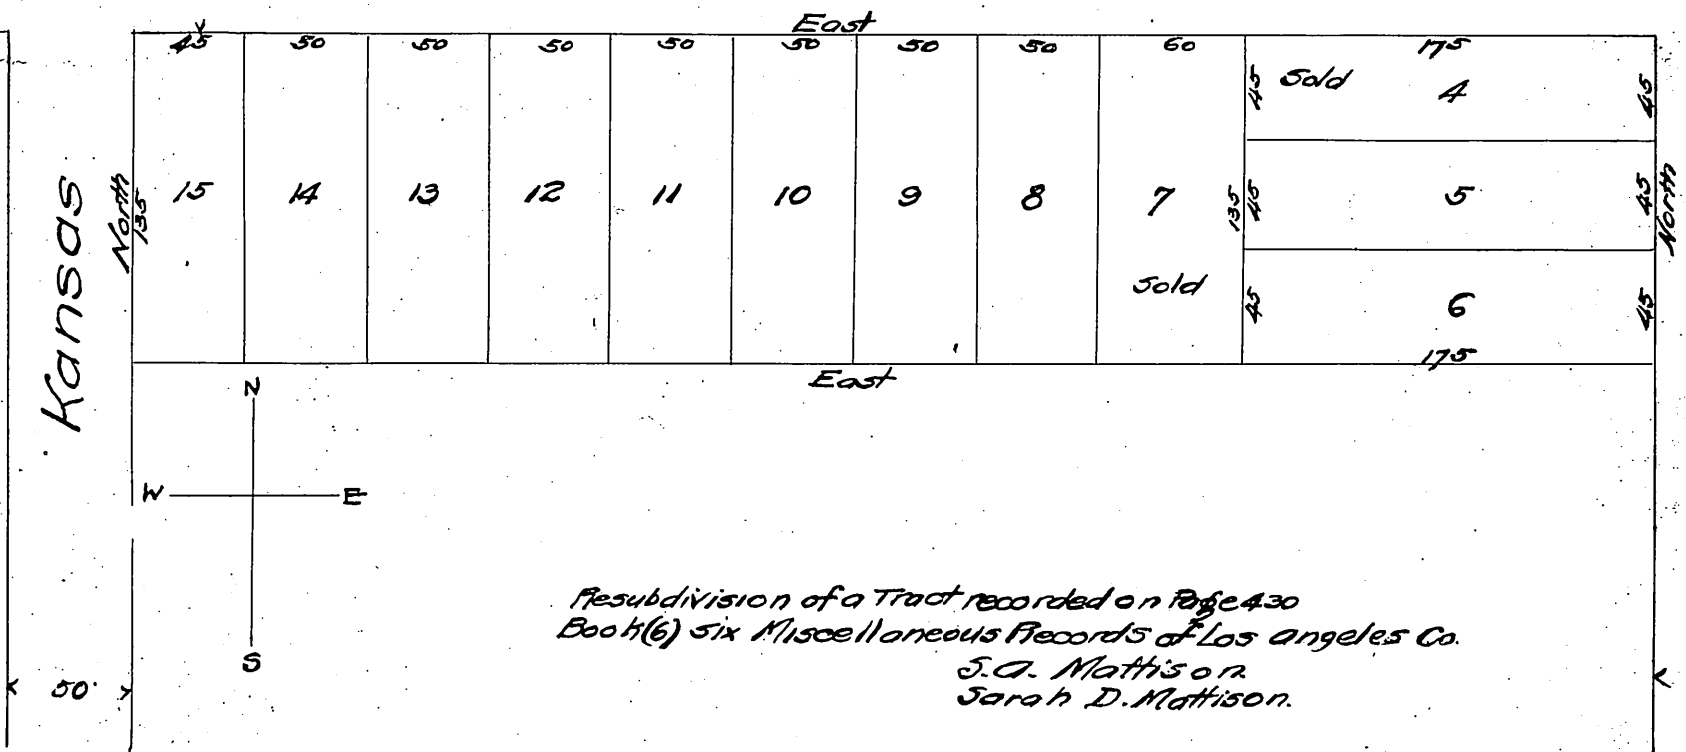 East
45 50 50 50 50 50 50 50 60 175
45 Sold 4 45
Kansas
North
135
15 14 13 12 11 10 9 8 7 135 45 5 45
North
Sold
45 6 45
175
East
N
W E
S
50
Resubdivision of a Tract recorded on Page 430
Book (6) six Miscellaneous Records of Los Angeles Co.
S.A. Mattison
Sarah D. Mattison.